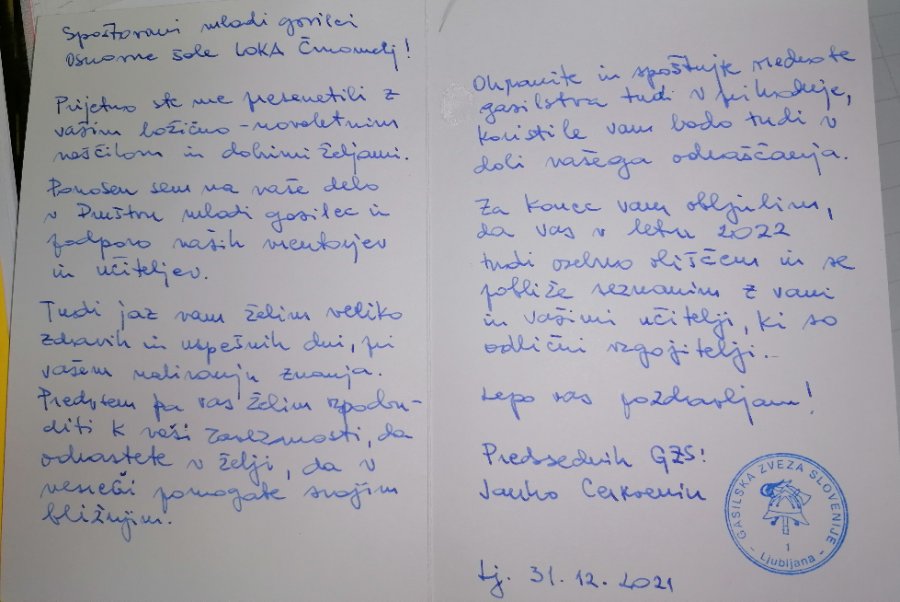 Spoštovani mladi gasilci
Osnovne šole LOKA Črnomelj!
Prijetno ste me presenetili z
vašim božično-novoletnim
voščilom in dobrimi željami.
Ponosen sem na vaše delo
v Društvu mladi gasilec in
podporo naših mentorjev
in učiteljev.
Tudi jaz vam želim veliko
zdravih in uspešnih dni, pri
vašem nabiranju znanja.
Predvsem pa vas želim vzpodbu-
diti k vaši zavezanosti, da
odrastete v želji, da v
nesreči pomagate svojim
bližnjim.
Ohranite in spoštujte vrednote
gasilstva tudi v prihodnje,
koristile vam bodo tudi v
dobi vašega odraščanja.
Za konec vam obljubim,
da vas v letu 2022
tudi osebno obiščem in se
pobliže seznanim z vami
in vašimi učitelji, ki so
odlični vzgojitelji.
Lepo vas pozdravljam!
Predsednik GZS:
Janko Cerkvenik
Lj. 31.12.2021
GASILSKA ZVEZA SLOVENIJE
1
- Ljubljana -